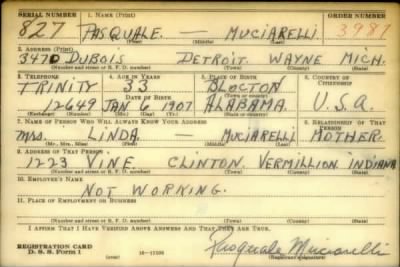 SERIAL NUMBER 1. NAME (Print) ORDER NUMBER
827 PASQUALE. — MUCIARELLI. 3987
(First) (Middle) (Last)
2. ADDRESS (Print)
3470 DUBOIS DETROIT. WAYNE MICH.
(Number and street or R. F. D. number) (Town) (County) (State)
3. TELEPHONE 4. AGE IN YEARS 5. PLACE OF BIRTH 6. COUNTRY OF CITIZENSHIP
TRINITY 33 BLOCTON
DATE OF BIRTH
12649 JAN 6 1907 ALABAMA. U.S.A.
(Exchange) (Number) (Mo.) (Day) (Yr.) (State or country)
7. NAME OF PERSON WHO WILL ALWAYS KNOW YOUR ADDRESS 8. RELATIONSHIP OF THAT PERSON
MRS. LINDA — MUCIARELLI MOTHER.
(Mr., Mrs., Miss) (First) (Middle) (Last)
9. ADDRESS OF THAT PERSON
1223 VINE. CLINTON. VERMILLION INDIANA
(Number and street or R. F. D. number) (Town) (County) (State)
10. EMPLOYER'S NAME
NOT WORKING.
11. PLACE OF EMPLOYMENT OR BUSINESS
(Number and street or R. F. D. number) (Town) (County) (State)
I AFFIRM THAT I HAVE VERIFIED ABOVE ANSWERS AND THAT THEY ARE TRUE.
REGISTRATION CARD
D. S. S. Form 1 Pasquale Muciarelli
(Registrant's signature)